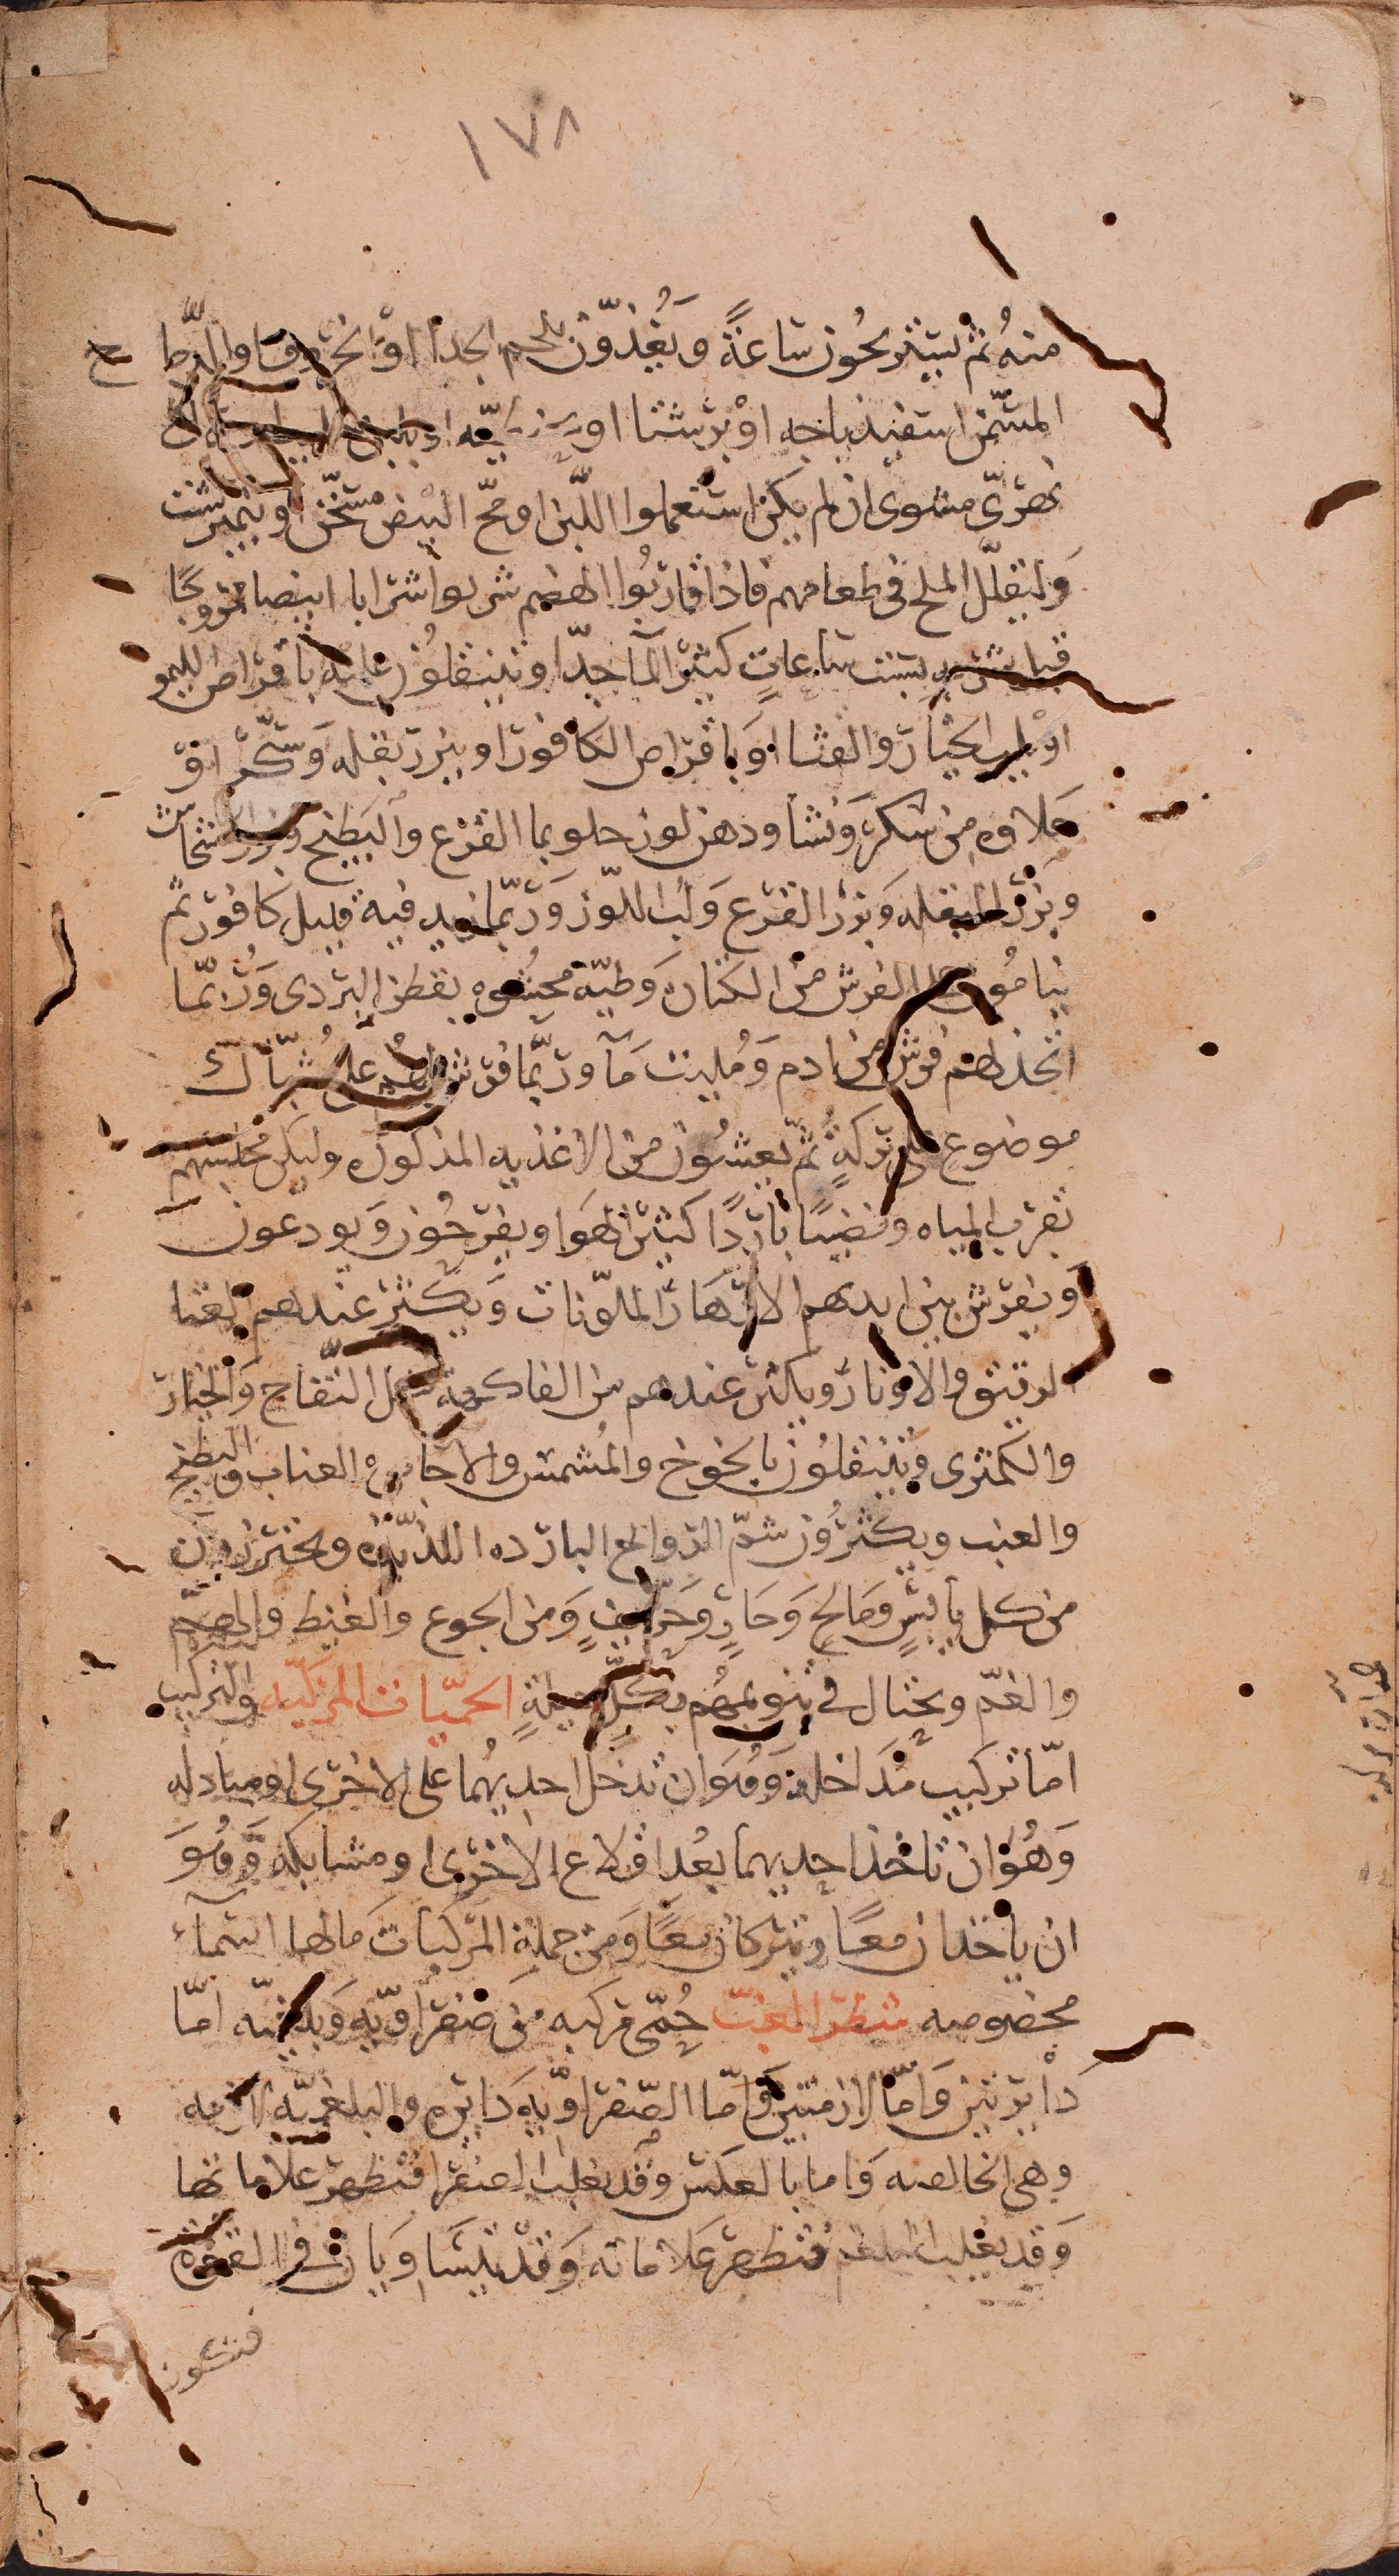 ١٧٨
منه ثم يستريحون ساعة ويغذون بلحم الجدا او الخروف او البط
المسمن اسفيذباجه او برشتا او
نهري مشوي ان لم يكن استعملوا اللبن او مح البيض مسخن او نيمبرشت
وليقلل الملح في طعامهم فاذا قاربوا الهضم شربوا شرابا ابيضا ممزوجا
قبل شربه بست ساعات كثير المآ جدا ويتنقلون عليه باقراص الليمو
او بلب الخيار والقثا او باقراص الكافور او ببزر بقله وسكر او
حلاوه من سكر ونشا ودهن لوز حلو بما القرع والبطيخ وبزر الخشخاش
وبزر البقله وبزر القرع ولب اللوز وربما زيد فيه قليل كافور ثم
ينامون على الفرش من الكتان وطية محشوه بقطن البردى وربما
اتخذ لهم فرش من ادم ومليت مآ وربما فرش لهم على شباك
موضوع على بركة ثم يعشون من الاغذيه المذكوره وليكن مجلسهم
بقرب المياه وفضيا باردا كثير الهوا ويفرحون ويودعون
ويفرش بين ايديهم الازهار الملونات ويكثر عندهم الغنا
الرقيق والاوتار ويكثر عندهم من الفاكهة مثل التفاح والخيار
والكمثرى ويتنقلون بالخوخ والمشمش والاجاص والعناب والبطيخ
والعنب ويكثرون شم الروائح البارده اللذيذه ويحترزون
من كل يابس ومالح وحار وحريف ومن الجوع والغيظ والهم
والغم ويحتال في تنويمهم بكل حيلة الحميات المركبه والتركيب
اما تركيب مداخلة وهو ان تدخل احديهما على الاخرى او مبادله
وهو ان تاخذ احديهما بعد اقلاع الاخرى او مشابكه وهو
ان ياخذان معا ويتركان معا ومن جملة المركبات ما لها اسماء
مخصوصه شطر الغب حمى مركبه من صفراويه وبلغميه اما
دايرتين واما لازمتين واما الصفراويه دايره والبلغميه لازمه
وهي الخالصه واما بالعكس وقد يغلب الصفرا فتظهر علاماتها
وقد يغلب البلغم فتظهر علاماته وقد يتساويان في القوه
فتكون